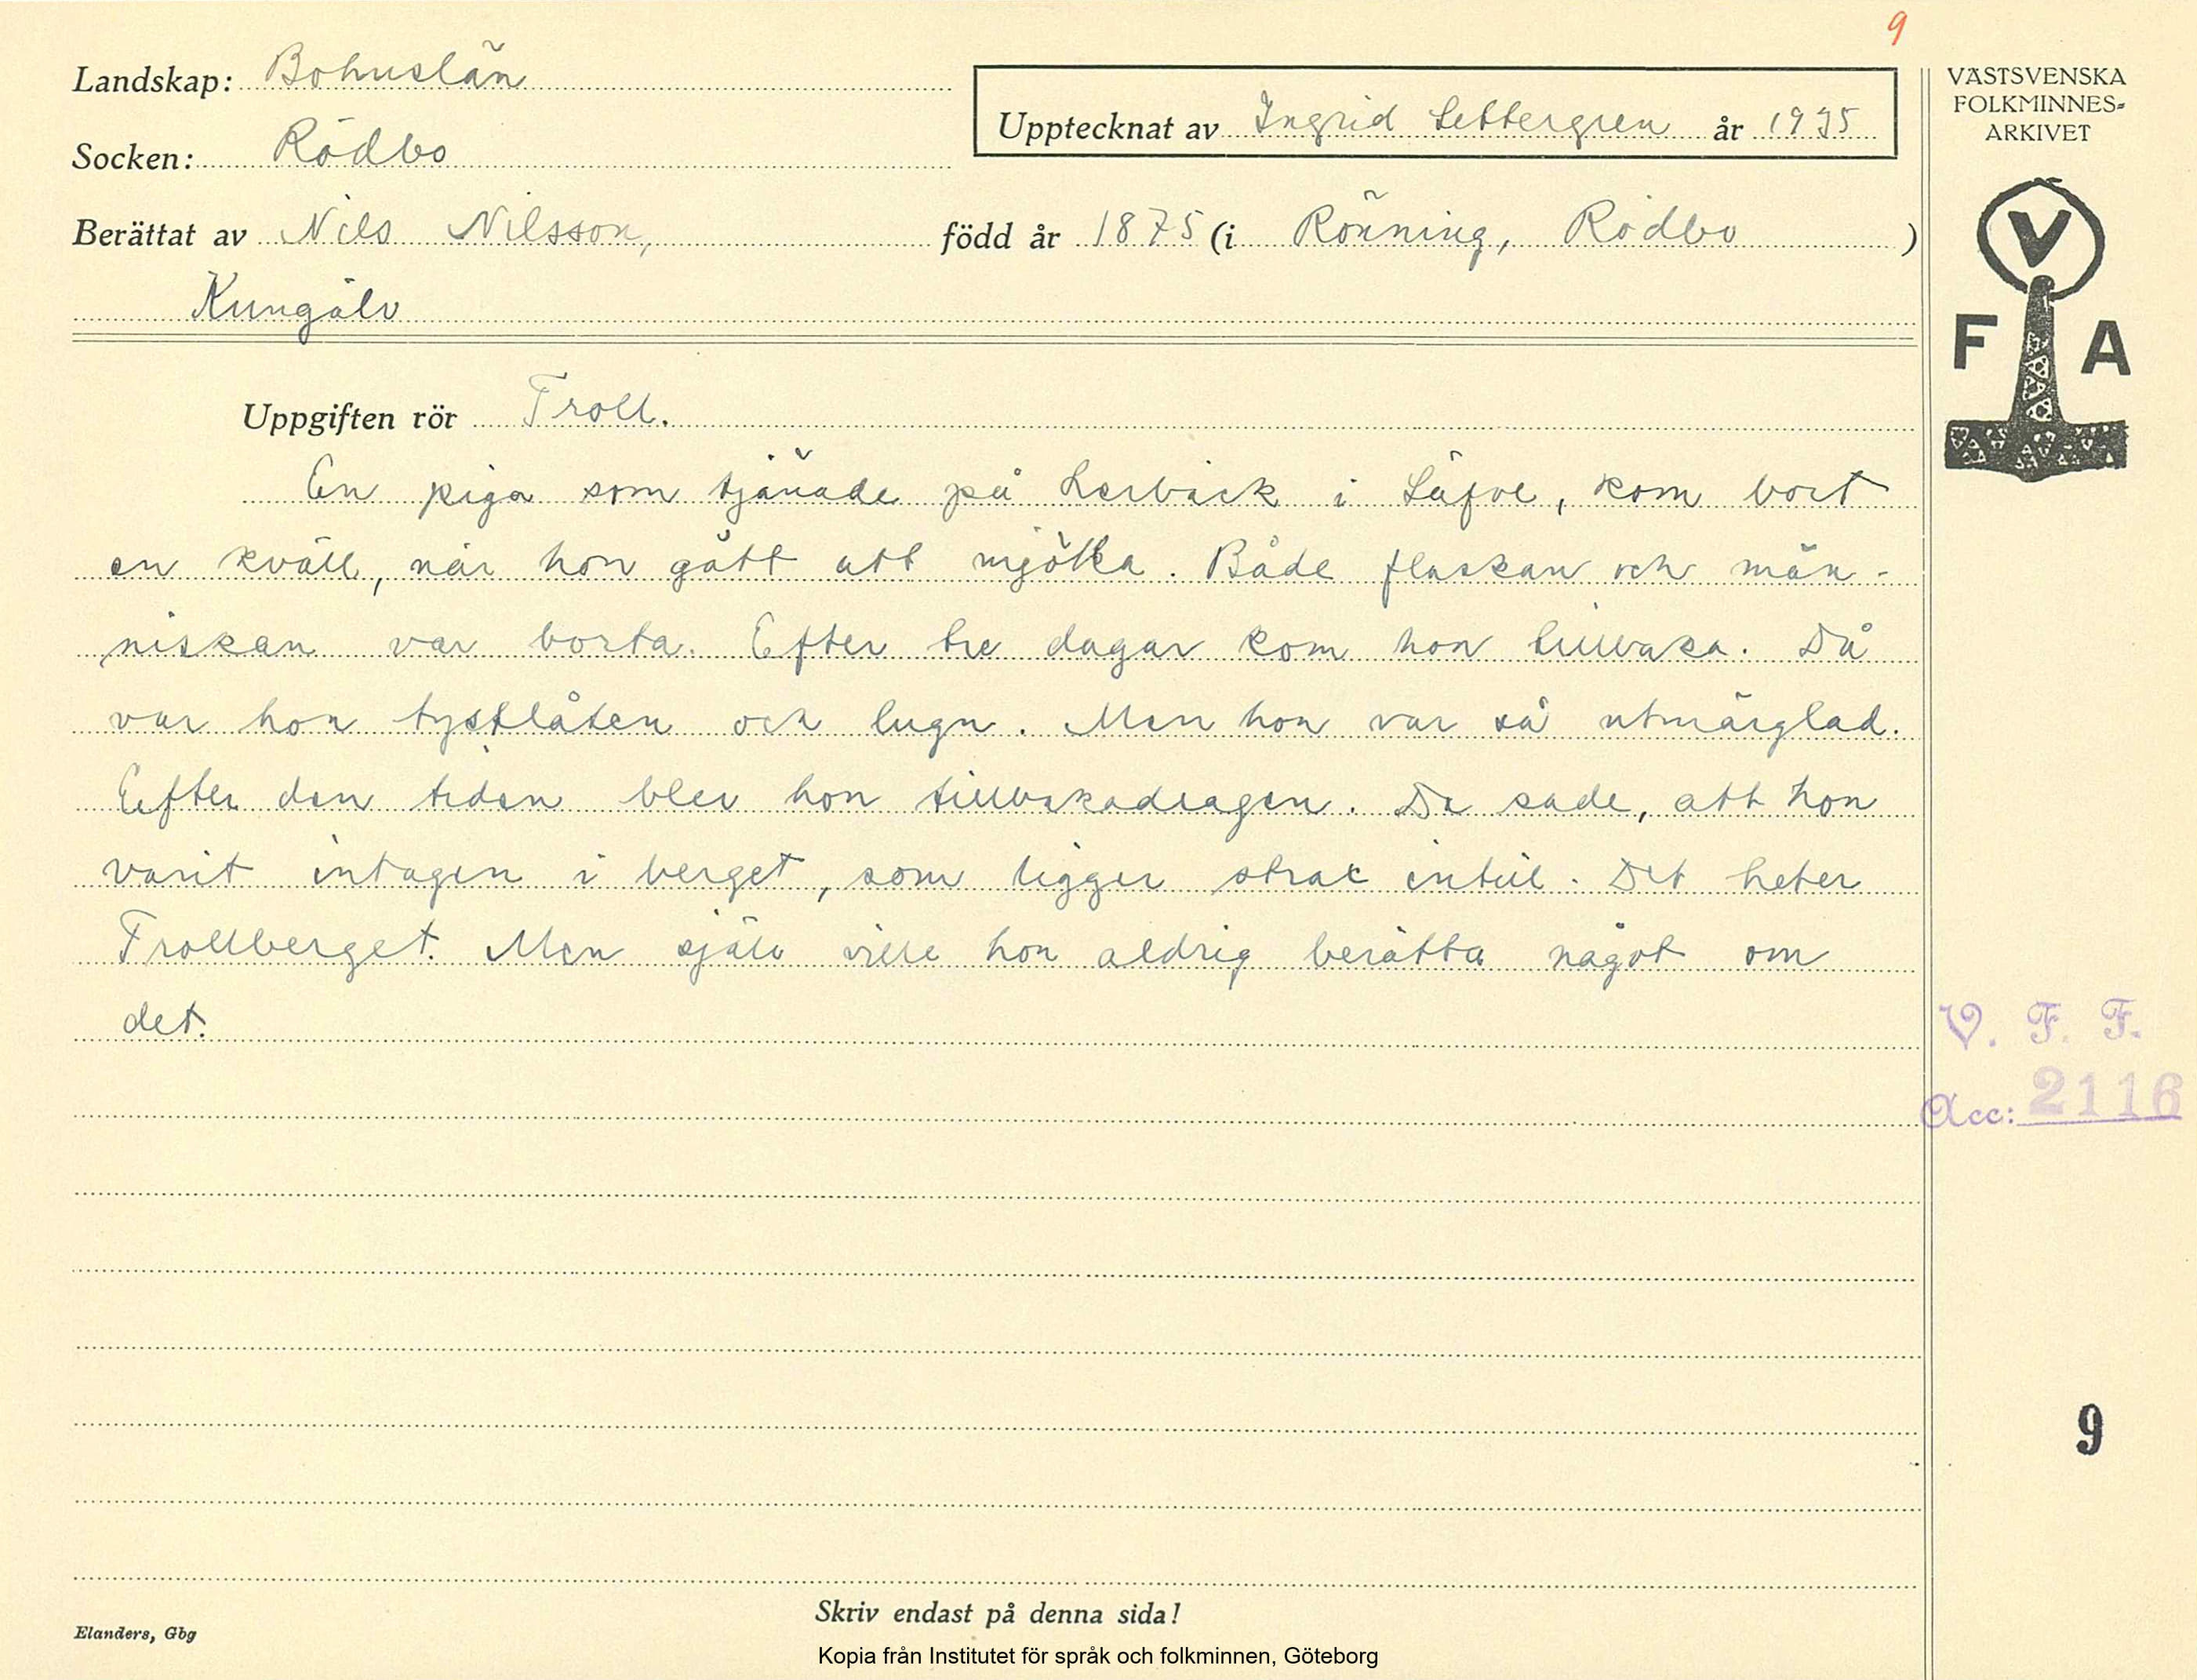 9
Landskap: Bohuslän
Socken: Rödbo
Upptecknat av Ingrid Settergren år 1935
Berättat av Nils Nilsson, född år 1875 (i Rönning, Rödbo)
Kungälv
VÄSTSVENSKA
FOLKMINNES=
ARKIVET
V
F A
Uppgiften rör Troll.
En piga som tjänade på Lerbäck i Säfve, kom bort
en kväll, när hon gått att mjölka. Både flaskan och män-
niskan var borta. Efter tre dagar kom hon tillbaka. Då
var hon tystlåten och lugn. Men hon var så utmärglad.
Efter den tiden blev hon tillbakadragen. De sade, att hon
varit intagen i berget, som ligger strax intill. Det heter
Trollberget. Men själv ville hon aldrig berätta något om
det.
V. F. F.
Acc: 2116
9
Skriv endast på denna sida!
Elanders, Gbg
Kopia från Institutet för språk och folkminnen, Göteborg